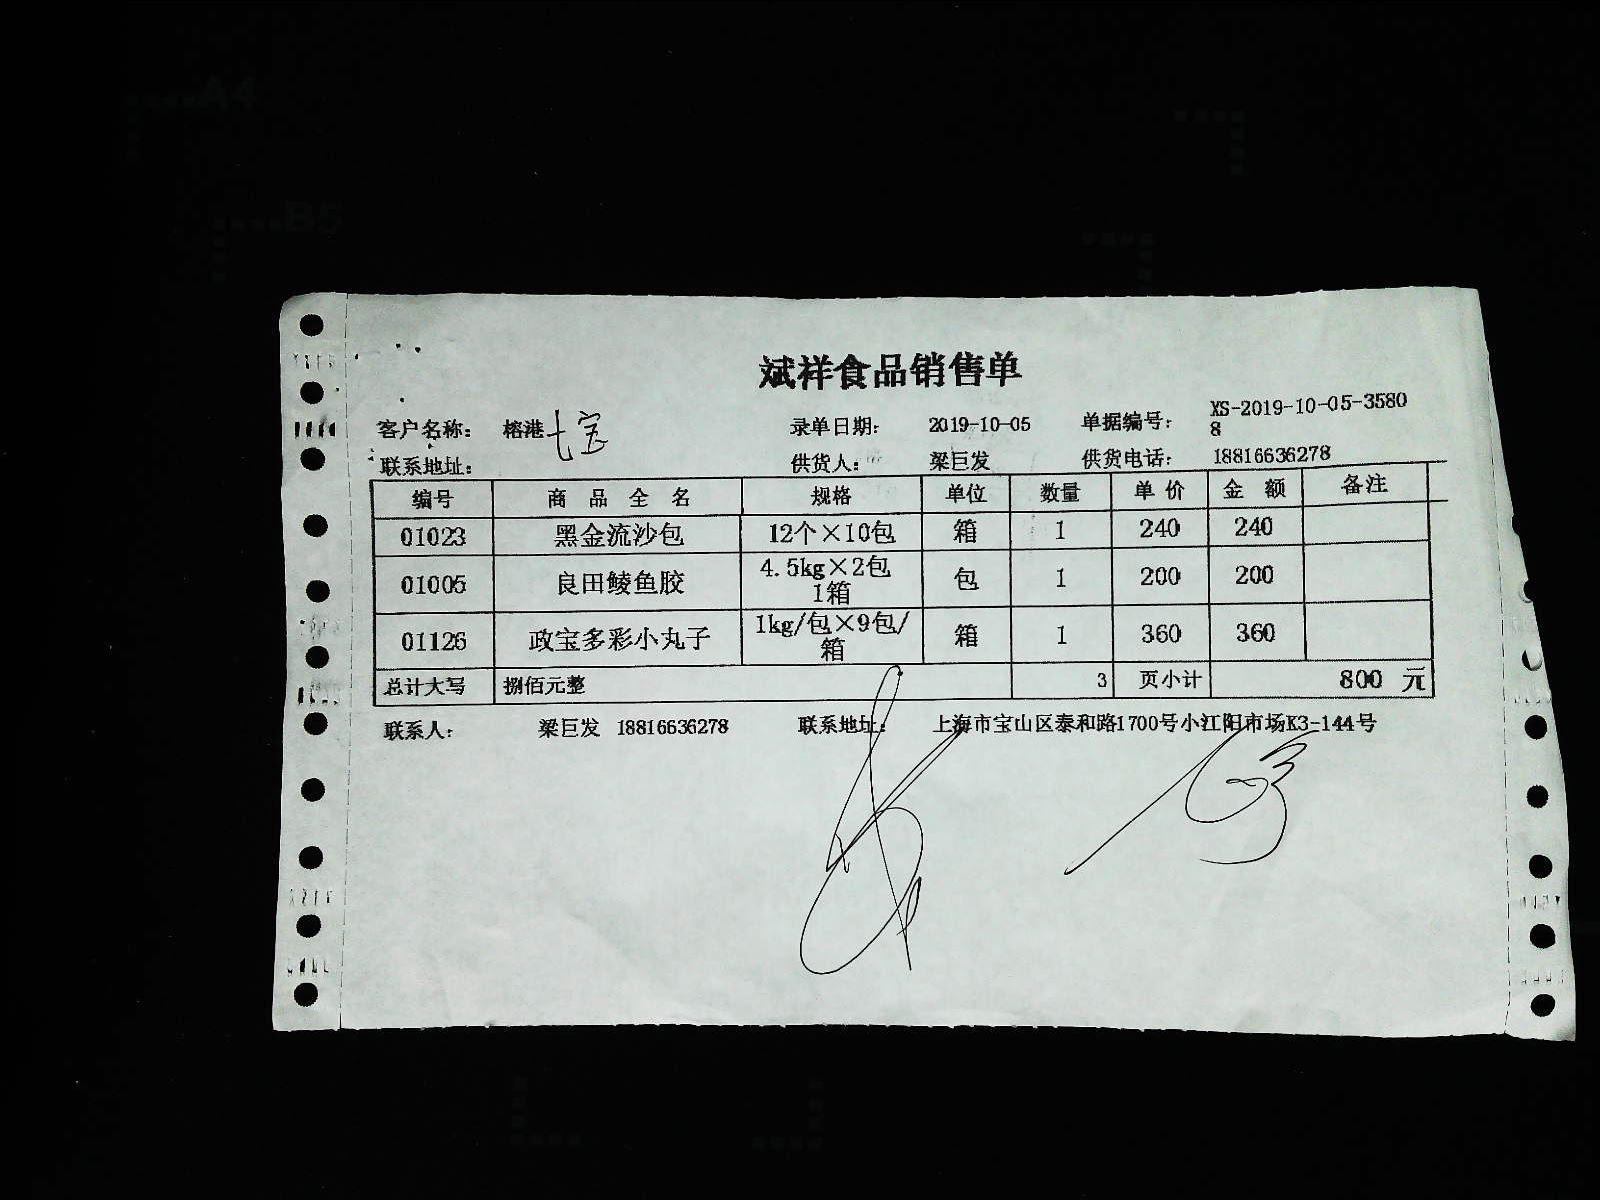 斌祥食品销售单
客户名称： 榕港七宝 录单日期： 2019-10-05 单据编号： XS-2019-10-05-3580
8
联系地址： 供货人： 梁巨发 供货电话： 18816636278
编号 商品全名 规格 单位 数量 单价 金额 备注
01023 黑金流沙包 12个×10包 箱 1 240 240
01005 良田鲮鱼胶 4.5kg×2包 包 1 200 200
1箱
01126 政宝多彩小丸子 1kg/包×9包/ 箱 1 360 360
箱
总计大写 捌佰元整 3 页小计 800 元
联系人： 梁巨发 18816636278 联系地址： 上海市宝山区泰和路1700号小江阳市场K3-144号